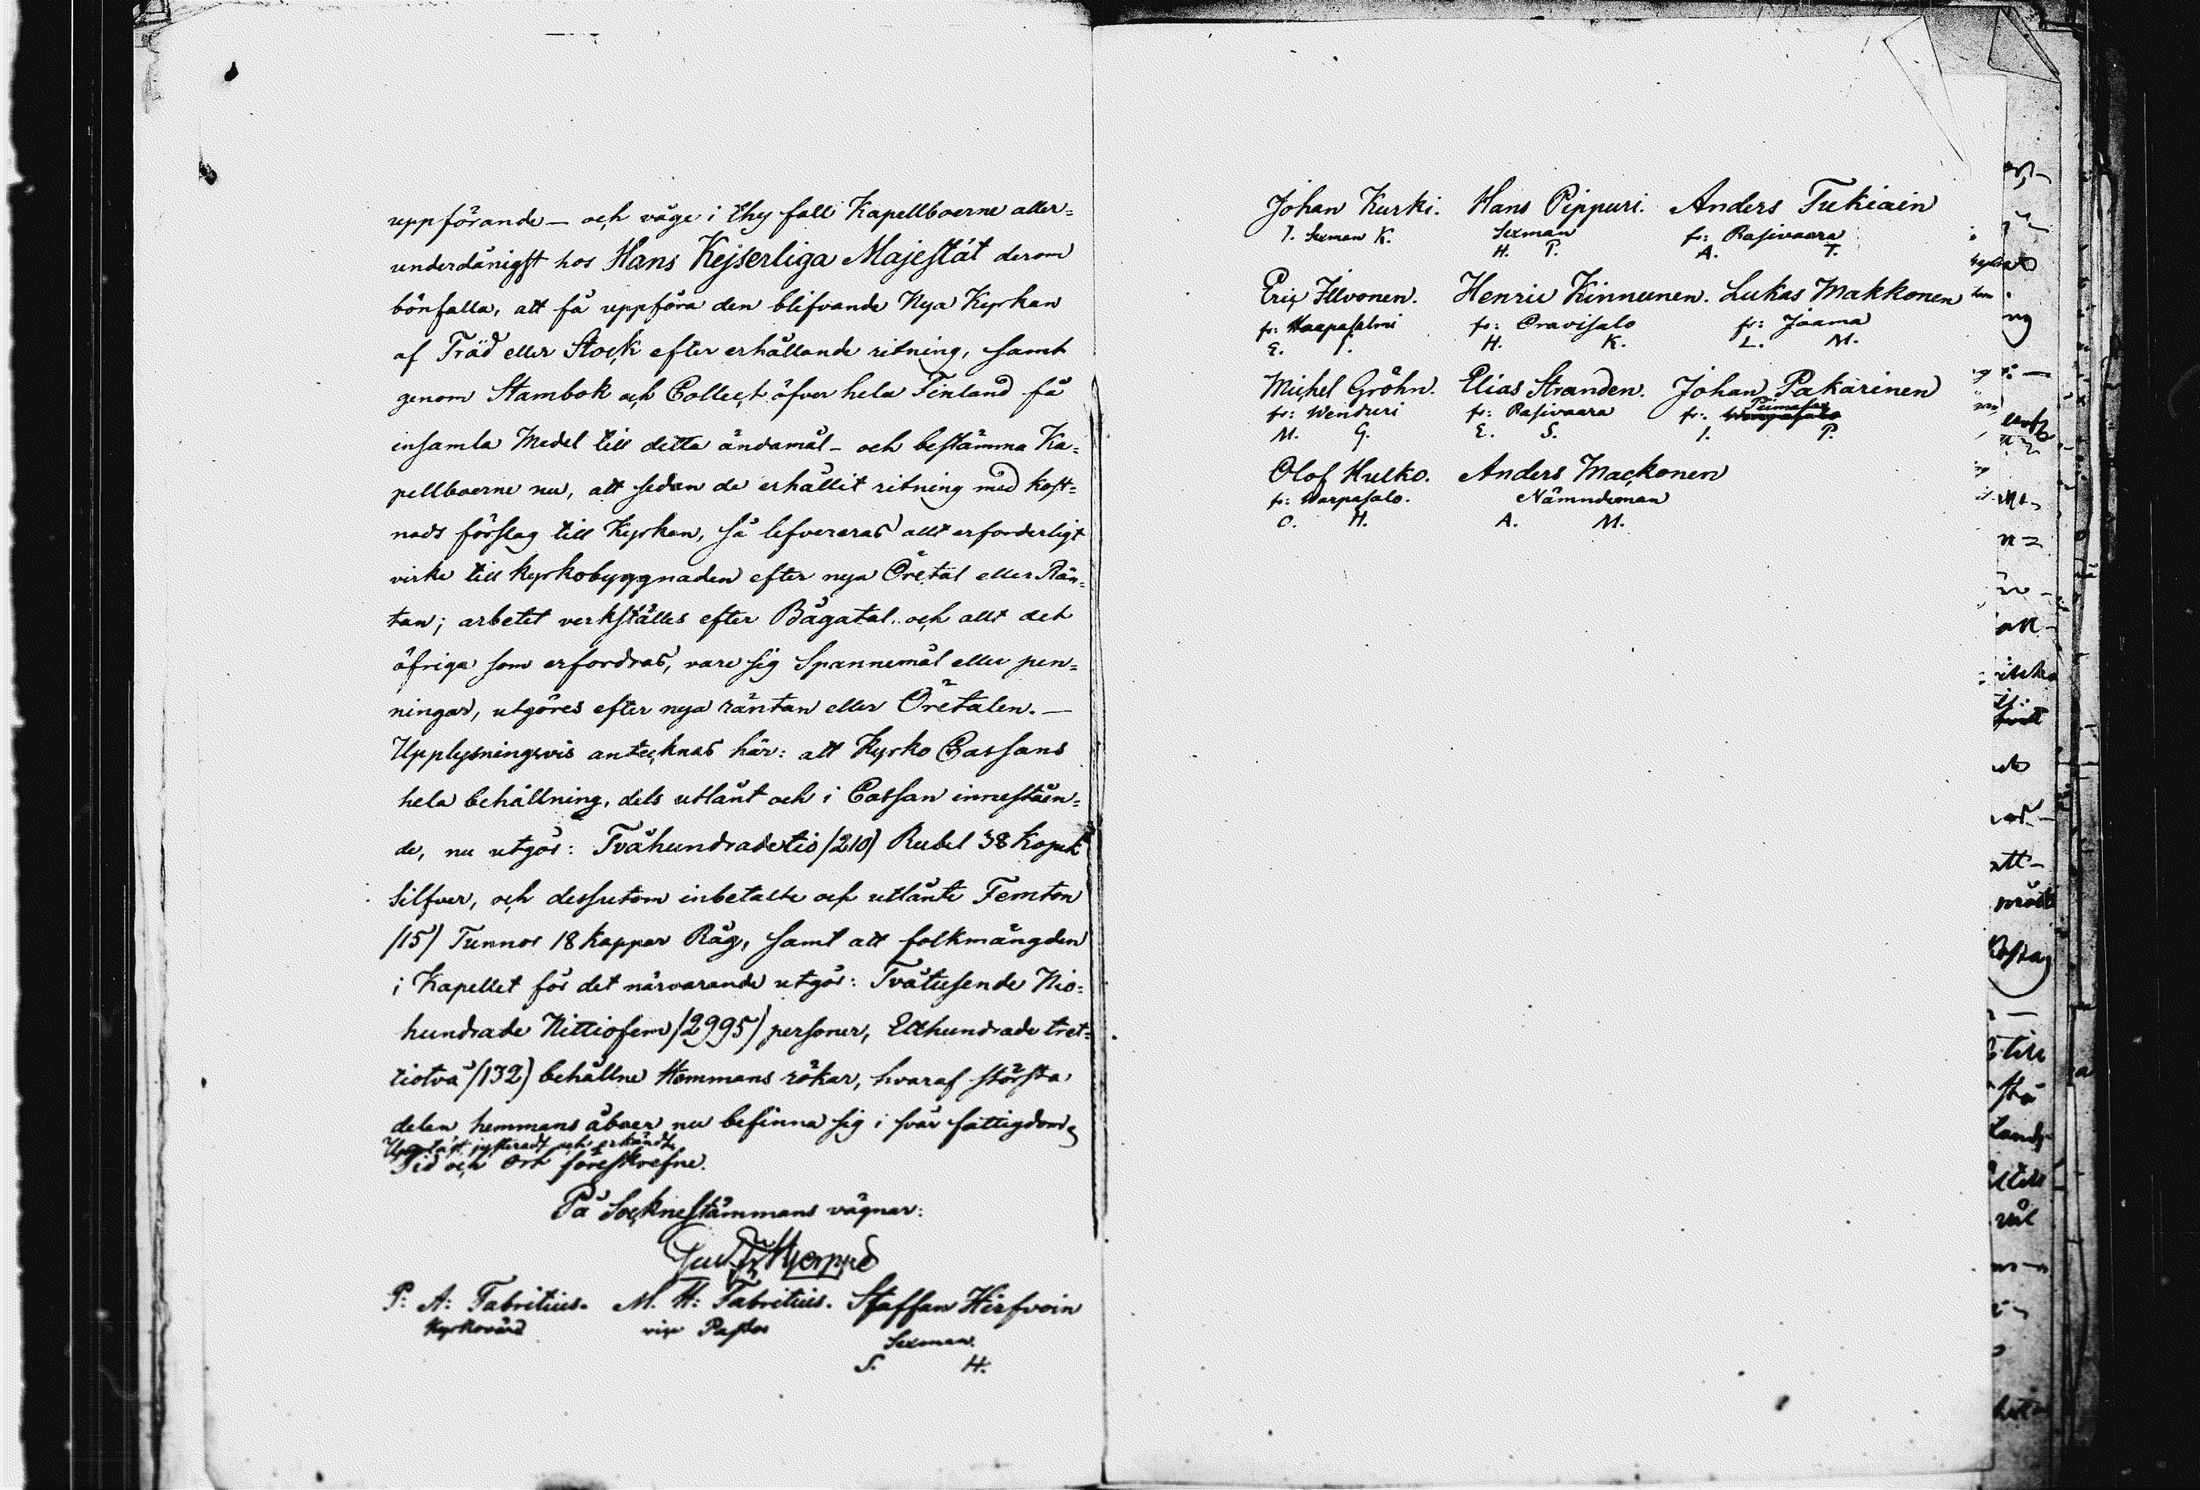 uppförande — och våge i thy fall Kapellboerne aller=
underdånigst hos Hans Kejserliga Majestät derom
bönfalla, att få uppföra den blifvande Nya Kyrkan
af Träd eller Stock efter erhållande ritning, samt
genom Stambok och Collect öfver hela Finland få
insamla Medel till detta ändamål — och bestämma Ka=
pellboerne nu, att sedan de erhållit ritning med kost=
nads förslag till Kyrkan, så lefvereras allt erforderligt
virke till kyrkobyggnaden efter nya Öretal eller Rän=
tan; arbetet verkställes efter Bågatal och allt det
öfriga som erfordras, vare sig Spannemål eller pen=
ningar, utgöres efter nya räntan eller Öretalen. —
Upplysningsvis antecknas här: att Kyrko Cassans
hela behållning, dels utlånt och i Cassan innestäen=
de, nu utgör: Tvåhundradetio /210/ Rubel 38 Kopek
Silfver, och dessutom inbetalte och utlånte Femton
/15/ Tunnor 18 kappar Råg, samt att folkmängden
i Kapellet för det närvarande utgör: Tvåtusende Nio=
hundrade Nittiofem /2995/ personer, Etthundrade tret=
tiotvå /132/ behållne Hemmans rökar, hvaraf största
delen hemmans åboer nu befinna sig i svår fattigdom,
Uppläst justeradt och erkändt
Tid och Ort föreskrefne.
På Socknestämmans vägnar:
P: A: Fabritius. M. H: Fabritius. Staffan Hirfvoin
Kyrkovärd vice Pastor Sexman.
S. H.
Johan Kurki. Hans Pippuri. Anders Tukiain
I. Sexman K. Sexman fr: Rasivaara
H. P. A. T.
Eric Ilvonen. Henric Kinnunen. Lukas Makkonen
fr: Haapasalmi fr: Oravisalo fr: Joama
E. I. H. K. L. M.
Michel Gröhn. Elias Stranden. Johan Pakarinen
fr: Wenduri fr: Rasivaara fr:
M. G. E. S. I. P.
Olof Hulko. Anders Mackonen
fr: Warpasalo. Nämndeman
O. H. A. M.